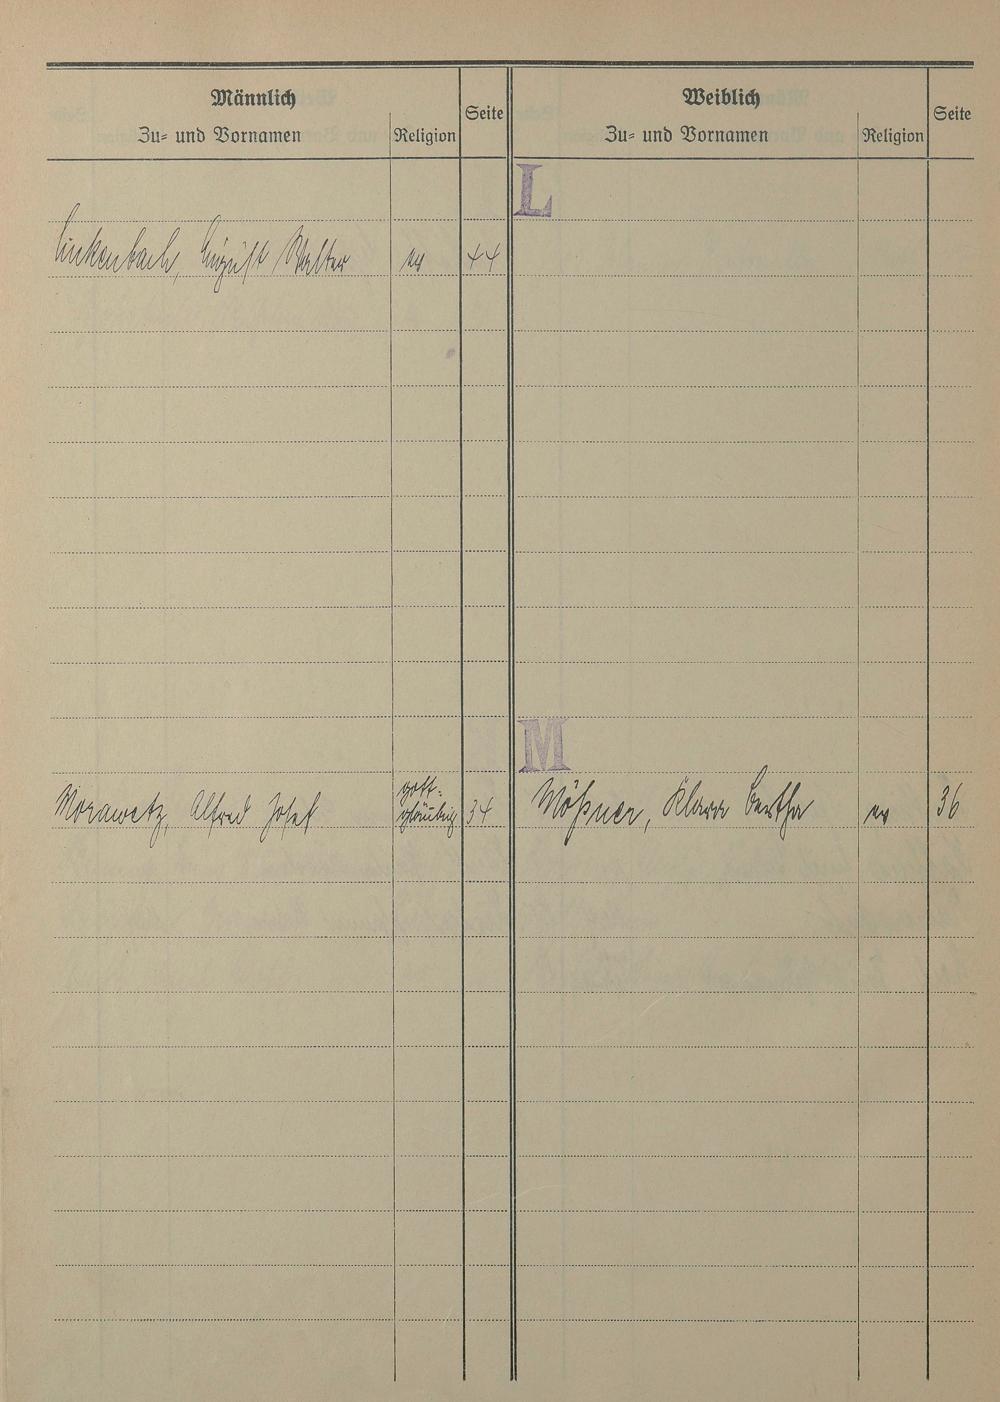 Männlich
Zu= und Vornamen
Religion
Seite
Weiblich
Zu= und Vornamen
Religion
Seite
L
Luckenbach, August Walter ev 44
M
Morawetz, Alfred Josef gott-
gläubig 34
Mößner, Klara Bertha ev 36